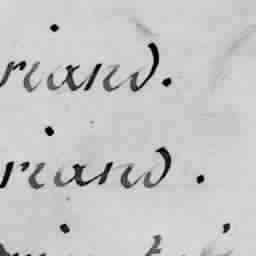 riand.
riand.